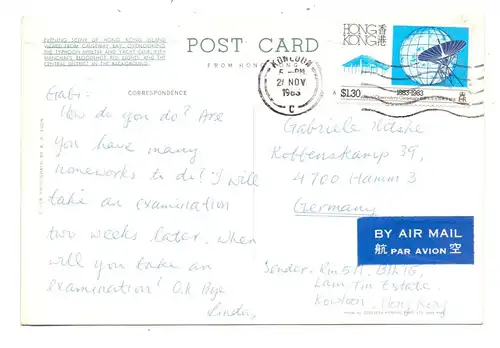 EVENING SCENE OF HONG KONG ISLAND
VIEWED FROM CAUSEWAY BAY, OVERLOOKING
THE TYPHOON SHELTER AND YACHT CLUB, WITH
WANCHAI'S BLOODSHOT RED LIGHTS AND THE
CENTRAL DISTRICT IN THE BACKGROUND.
POST CARD
FROM HONG KONG
CORRESPONDENCE
Gabi:
How do you do? Are
you have many
homeworks to do! I will
take an examination
two weeks later. When
will you take an
examination! O.K Bye
Linda
KOWLOON
5 PM
NOV
1983
C
HONG
KONG
香
港
$1.30
1883-1983
Gabriele
Kobbenskamp 39,
4700 Hamm 3
Germany
BY AIR MAIL
航 PAR AVION 空
Sender: Rm 511, Blk 15,
Lam Tin Estate,
Kowloon, Hong Kong